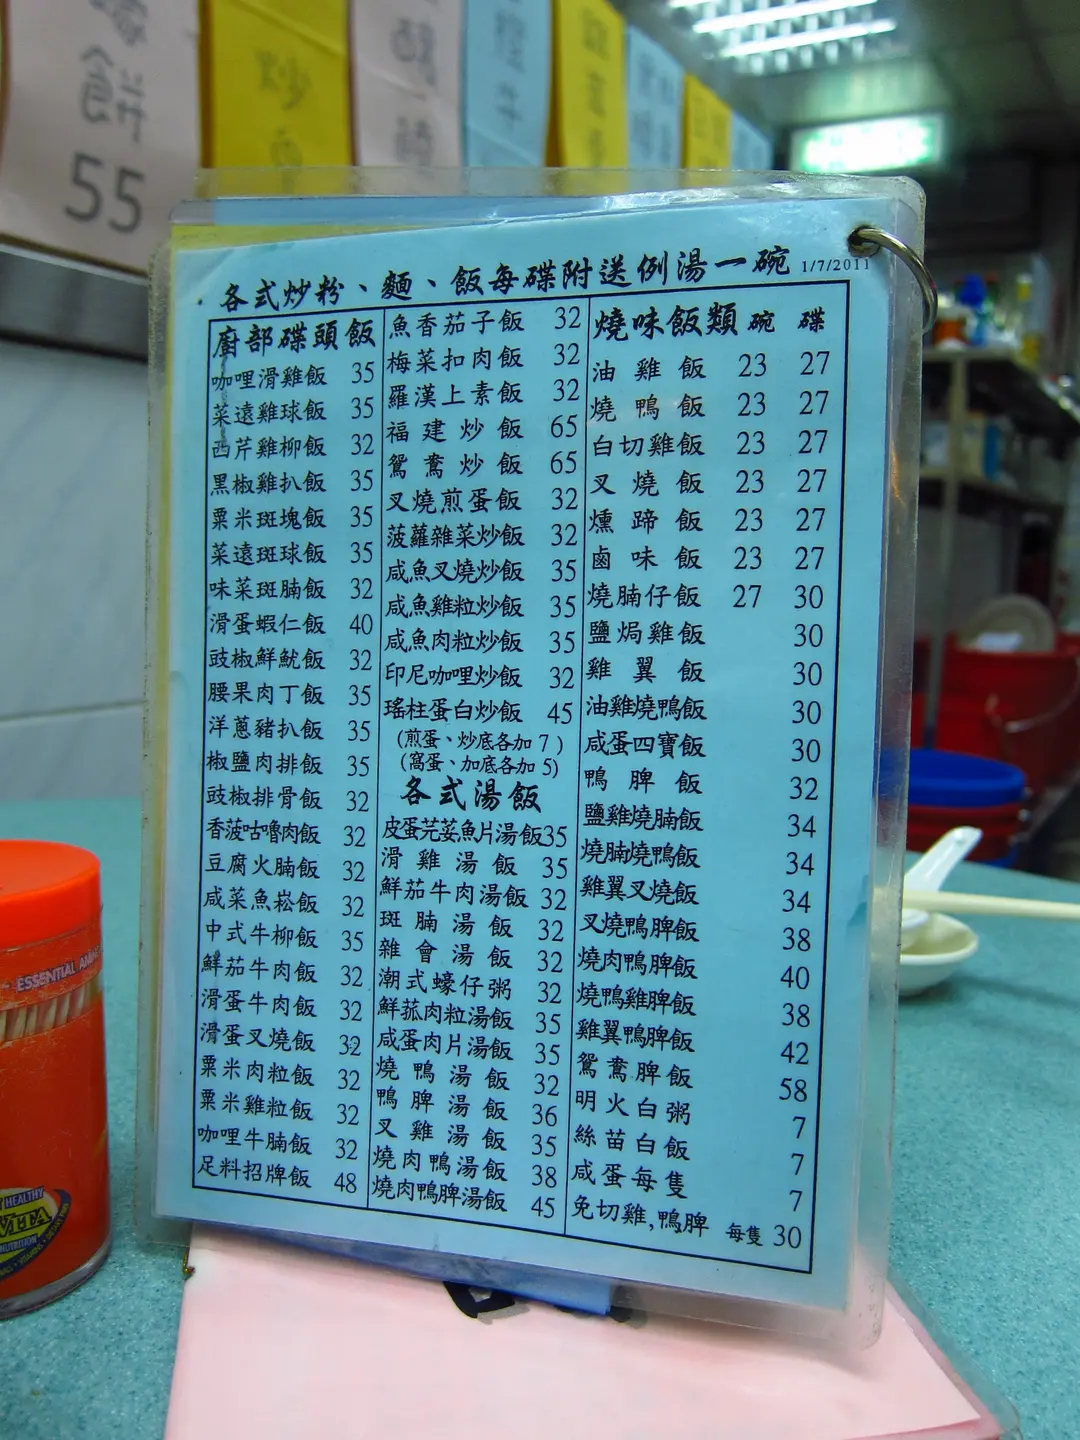 餅
55
炒
牛
各式炒粉、麵、飯每碟附送例湯一碗 1/7/2011
廚部碟頭飯
咖哩滑雞飯 35
菜遠雞球飯 35
西芹雞柳飯 32
黑椒雞扒飯 35
粟米斑塊飯 35
菜遠斑球飯 35
味菜斑腩飯 32
滑蛋蝦仁飯 40
豉椒鮮魷飯 32
腰果肉丁飯 35
洋蔥豬扒飯 35
椒鹽肉排飯 35
豉椒排骨飯 32
香菠咕嚕肉飯 32
豆腐火腩飯 32
咸菜魚崧飯 32
中式牛柳飯 35
鮮茄牛肉飯 32
滑蛋牛肉飯 32
滑蛋叉燒飯 32
粟米肉粒飯 32
粟米雞粒飯 32
咖哩牛腩飯 32
足料招牌飯 48
魚香茄子飯 32
梅菜扣肉飯 32
羅漢上素飯 32
福建炒飯 65
鴛鴦炒飯 65
叉燒煎蛋飯 32
菠蘿雜菜炒飯 32
咸魚叉燒炒飯 35
咸魚雞粒炒飯 35
咸魚肉粒炒飯 35
印尼咖哩炒飯 32
瑤柱蛋白炒飯 45
(煎蛋、炒底各加 7 )
(窩蛋、加底各加 5)
各式湯飯
皮蛋芫荽魚片湯飯 35
滑雞湯飯 35
鮮茄牛肉湯飯 32
斑腩湯飯 32
雜會湯飯 32
潮式蠔仔粥 32
鮮菰肉粒湯飯 35
咸蛋肉片湯飯 35
燒鴨湯飯 32
鴨脾湯飯 36
叉雞湯飯 35
燒肉鴨湯飯 38
燒肉鴨脾湯飯 45
燒味飯類 碗 碟
油雞飯 23 27
燒鴨飯 23 27
白切雞飯 23 27
叉燒飯 23 27
燻蹄飯 23 27
鹵味飯 23 27
燒腩仔飯 27 30
鹽焗雞飯 30
雞翼飯 30
油雞燒鴨飯 30
咸蛋四寶飯 30
鴨脾飯 32
鹽雞燒腩飯 34
燒腩燒鴨飯 34
雞翼叉燒飯 34
叉燒鴨脾飯 38
燒肉鴨脾飯 40
燒鴨雞脾飯 38
雞翼鴨脾飯 42
鴛鴦脾飯 58
明火白粥 7
絲苗白飯 7
咸蛋每隻 7
免切雞,鴨脾 每隻 30
ESSENTIAL
HEALTHY
VITA
NUTRITION